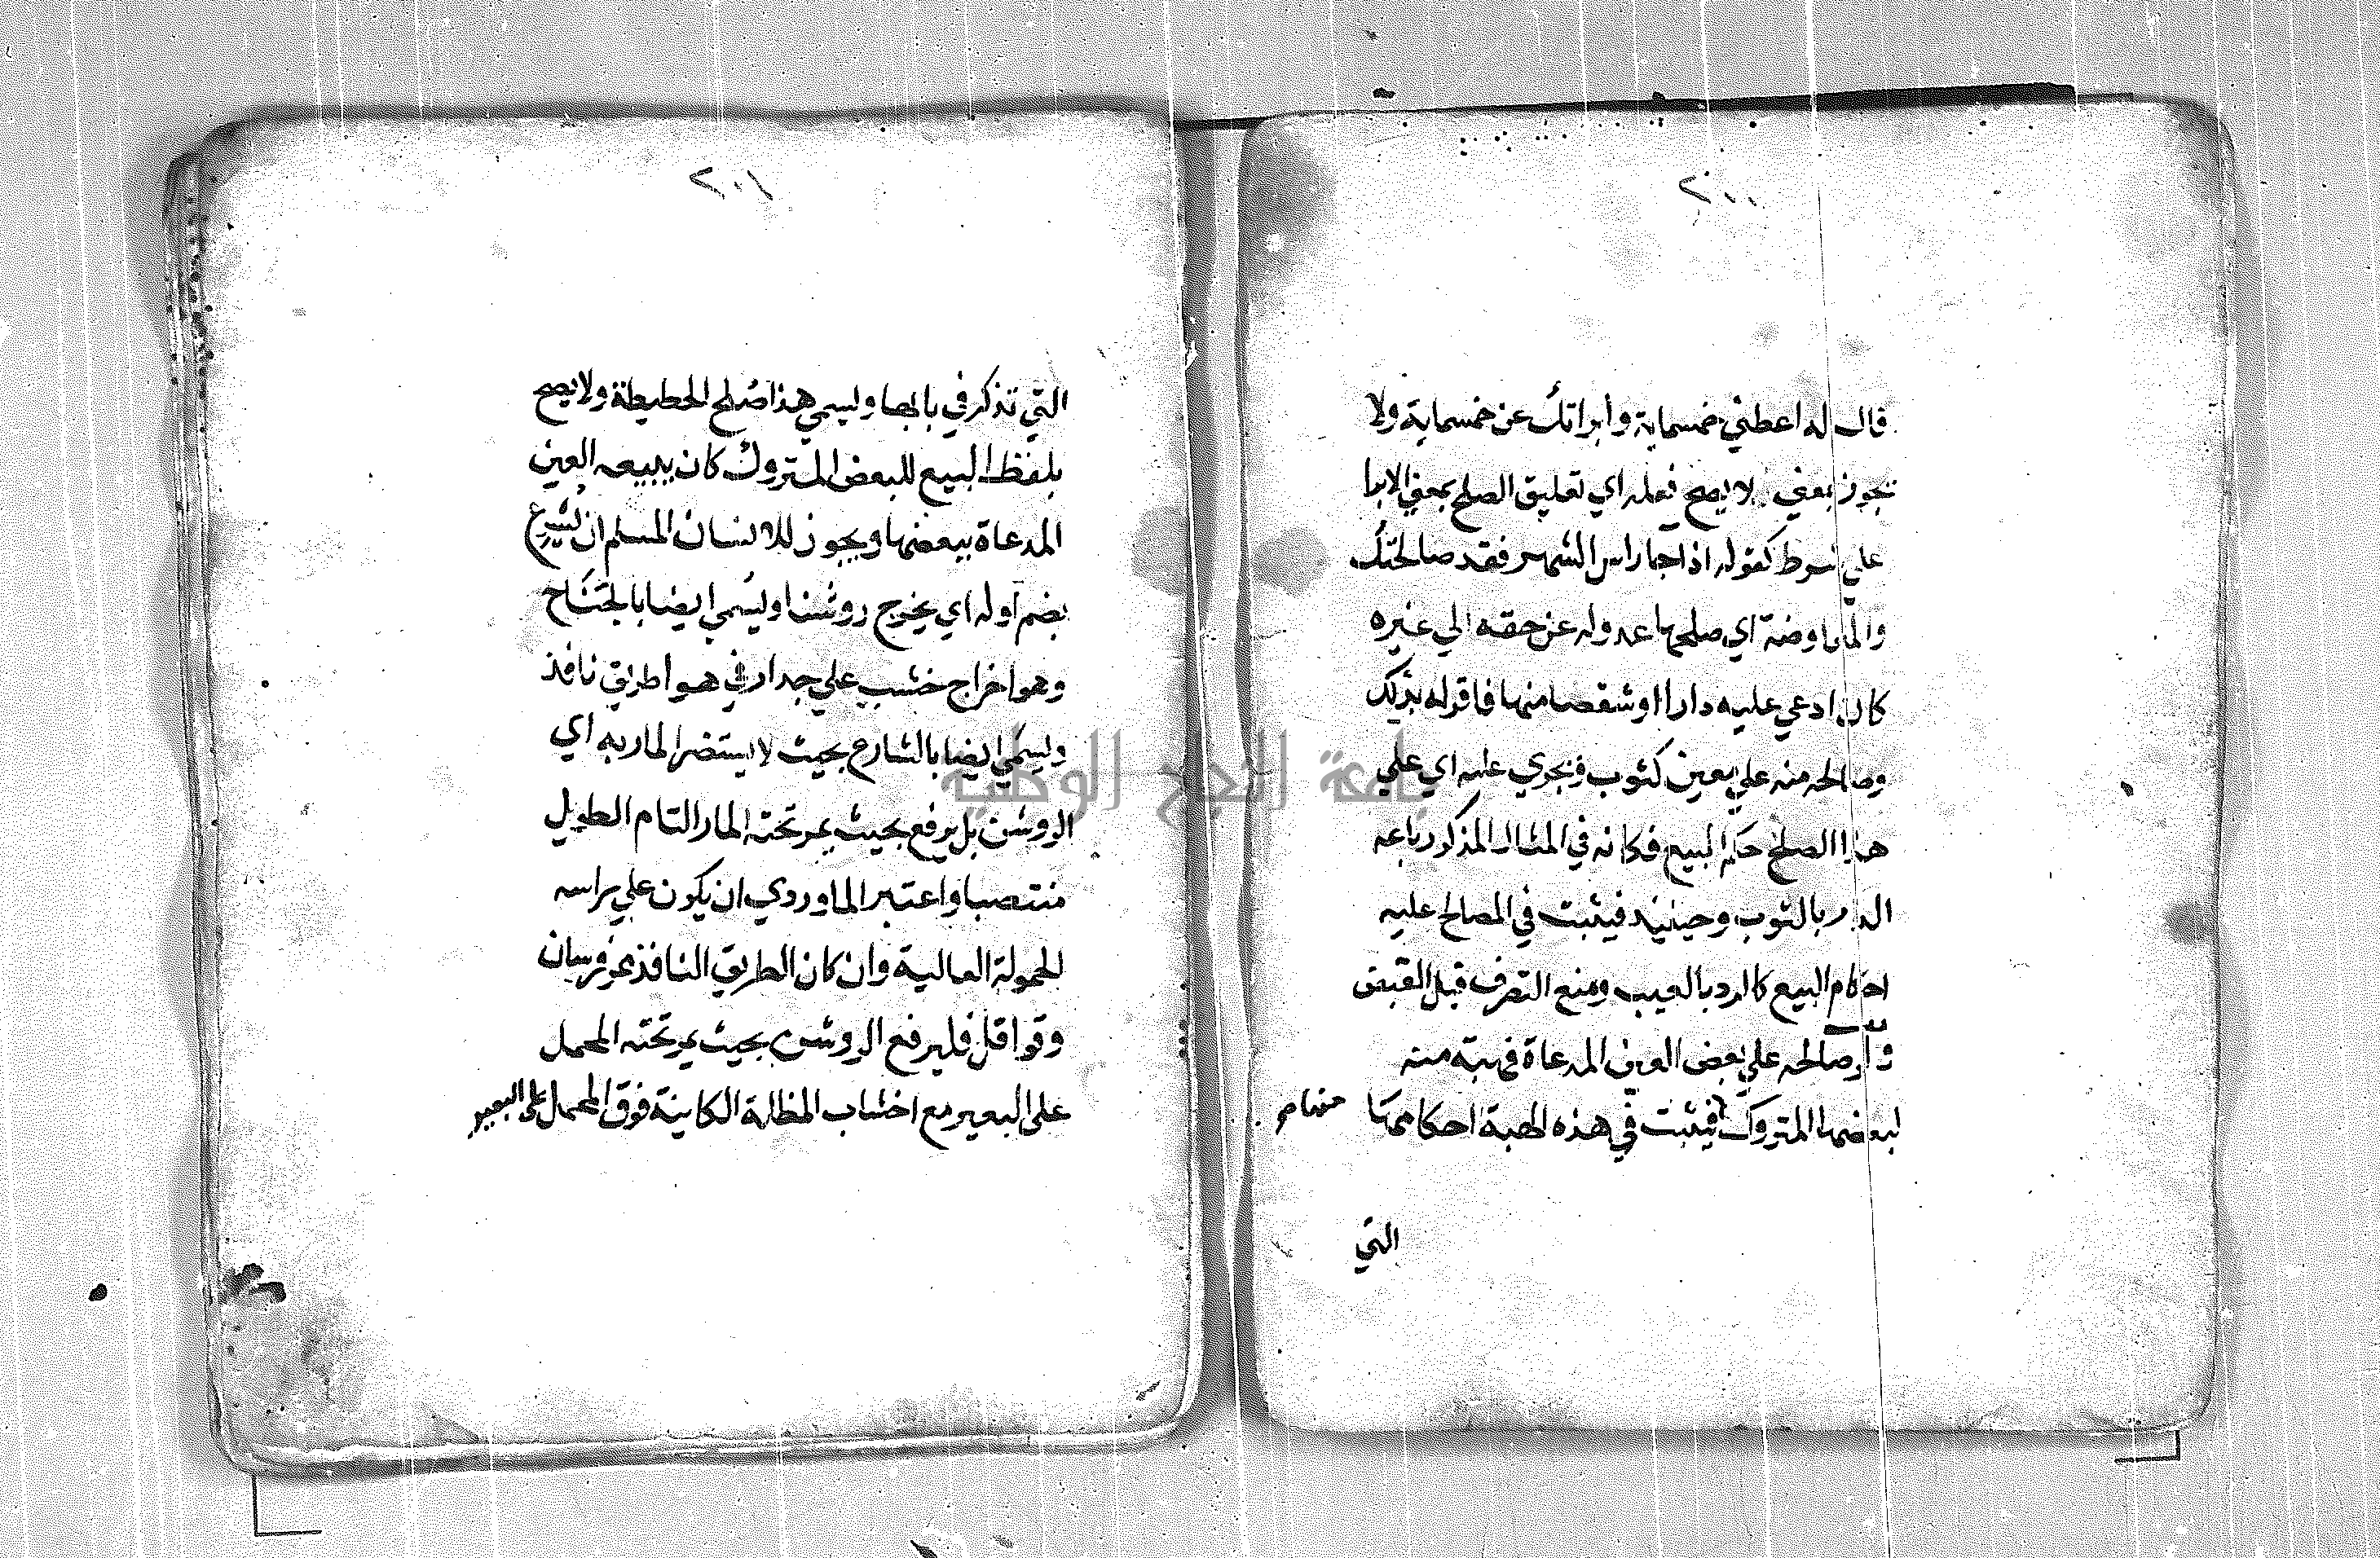 ٢٠٠
قال له اعطني خمسماية وأبراتك عن خمسماية ولا
يجوز بمعني لا يصح فعله اي تعليق الصلح بمعني الابرا
علي شرط كقوله اذا جا راس الشهر فقد صالحتك
والمعاوضة اي صلحها عدوله عن حقه الي غيره
كان ادعي عليه دارا اوشقصا منها فاقر له بذلك
وصالحه منه علي معين كثوب ويجري عليه اي علي
هذا الصلح حكم البيع فكانه في المثال المذكور باعه
الدار بالثوب وحينيذ فيثبت في المصالح عليه
احكام البيع كالرد بالعيب ومنع التصرف قبل القبض
ولو صالحه علي بعض العين المدعاة فهبة منه
لبعضها المتروك فيثبت في هذه الهبة احكامها
التي
جامعة النجاح الوطنية
٢٠١
التي تذكر في بابها ويسمي هذا صلح الحطيطة ولا يصح
بلفظ البيع للبعض المتروك كان يبيعه العين
المدعاة ببعضها ويجوز للانسان المسلم ان يشرع
بضم اوله اي يخرج روشنا ويسمي ايضا بالجناح
وهو اخراج خشب علي جدار في هوا طريق نافذ
ويسمي ايضا بالشارع بحيث لا يستضر المار به اي
الروشن بل يرفع بحيث يمر تحته المار التام الطويل
منتصبا واعتبر الماوردي ان يكون علي راسه
الحمولة العالية وان كان الطريق النافذ ممر فرسان
وقوافل فليرفع الروشن بحيث يمر تحته المحمل
على البعير مع اخشاب المظلة الكاينة فوق المحمل على البعير